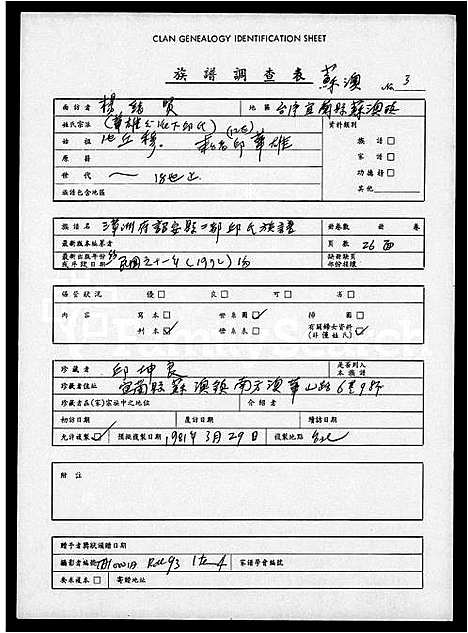 CLAN GENEALOGY IDENTIFICATION SHEET
族譜調查表 蘇澳 No 3
面訪者 楊緒賢 地區 台灣宜蘭縣蘇澳鎮
姓氏宗派 (華雄公派下邱氏) 資料類別
始祖 邱華雄 族譜 □
原籍 家譜 □
世代 一 ~ 18世止 功德榜 □
族譜包含地區 其他
族譜名 漳洲府詔安縣二都邱氏族譜 册卷數 册 卷
最新版本編纂者 頁數 26面
最新出版年份或序跋日期 民國六十一年 缺册缺頁部份説明
保管狀況 優 □ 良 □ 可 □ 劣 □
內容 寫本 □ 世系圖 ☑ 禮圖 □
刊本 ☑ 世系表 □ 有關婦女資料(非僅姓氏) ☑
珍藏者 邱坤良 是否列入本族譜
珍藏者住址 宜蘭縣蘇澳鎮南方澳華山路6巷9號
珍藏者在(家)宗族中之地位 介紹者
初訪日期 復訪日期 續訪日期
允許複製 ☑ 預擬複製日期 1981年3月29日 複製地點
附註
贈予者獎狀頒贈日期
攝影者編號 Roll 93 Item 4 家譜學會編號
要求複本 □ 寄贈地址